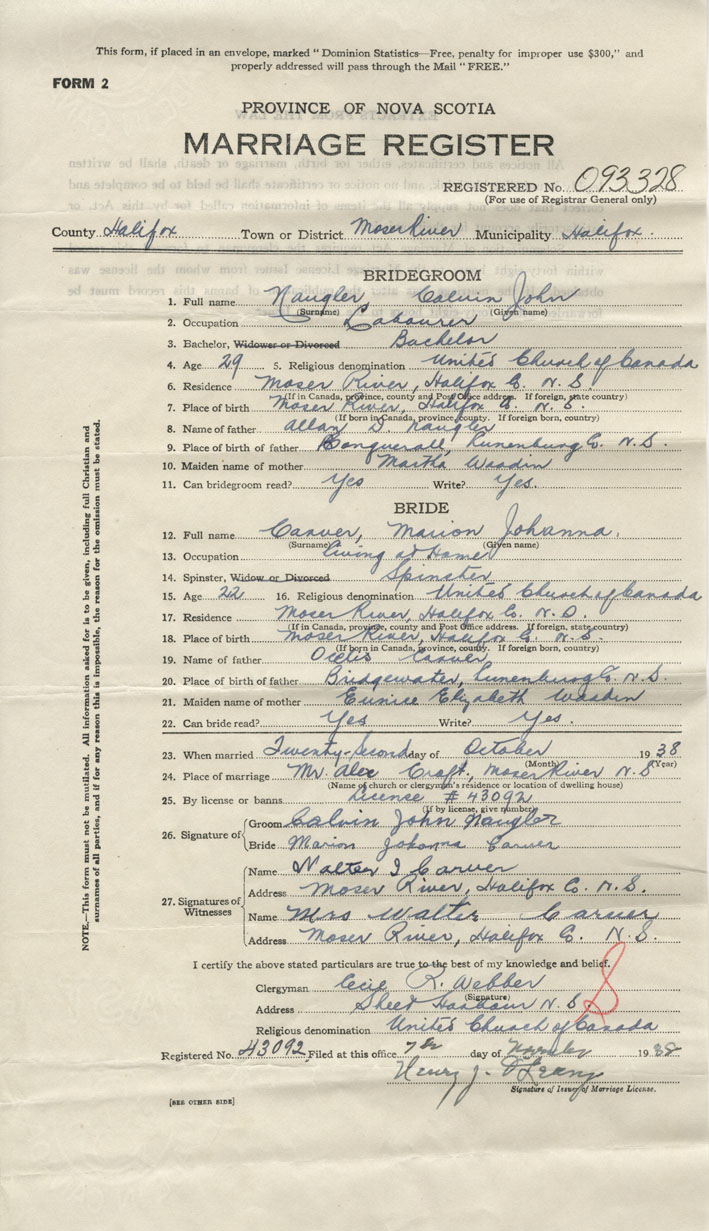 This form, if placed in an envelope, marked "Dominion Statistics—Free, penalty for improper use $300," and
properly addressed will pass through the Mail "FREE."
FORM 2
PROVINCE OF NOVA SCOTIA
MARRIAGE REGISTER
REGISTERED No. 093328
(For use of Registrar General only)
County Halifax Town or District Moser River Municipality Halifax.
BRIDEGROOM
1. Full name Naugler, Calvin John
(Surname) (Given name)
2. Occupation Labourer
3. Bachelor, Widower or Divorced Bachelor
4. Age 29 5. Religious denomination United Church of Canada
6. Residence Moser River, Halifax Co. N. S.
(If in Canada, province, county and Post Office address. If foreign, state country)
7. Place of birth Moser River, Halifax Co. N. S.
(If born in Canada, province, county. If foreign born, country)
8. Name of father Allan D. Naugler
9. Place of birth of father Conquerall, Lunenburg Co. N. S.
10. Maiden name of mother Martha
11. Can bridegroom read? Yes Write? Yes.
BRIDE
12. Full name Carver, Marion Johanna.
(Surname) (Given name)
13. Occupation Living at Home
14. Spinster, Widow or Divorced Spinster
15. Age 22 16. Religious denomination United Church of Canada
17. Residence Moser River, Halifax Co. N. S.
(If in Canada, province, county and Post Office address. If foreign, state country)
18. Place of birth Moser River, Halifax Co. N. S.
(If born in Canada, province, county. If foreign born, country)
19. Name of father Carver
20. Place of birth of father Bridgewater, Lunenburg Co. N. S.
21. Maiden name of mother Eunice Elizabeth
22. Can bride read? Yes Write? Yes.
23. When married Twenty-Second day of October 1938
(Month) (Year)
24. Place of marriage Mr. Alex Croft, Moser River N. S
(Name of church or clergyman's residence or location of dwelling house)
25. By license or banns License # 43092
(If by license, give number)
26. Signature of Groom Calvin John Naugler
Bride Marion Johanna Carver
27. Signatures of Witnesses Name Walter J Carver
Address Moser River, Halifax Co. N. S.
Name Mrs Walter Carver
Address Moser River, Halifax Co. N. S.
I certify the above stated particulars are true to the best of my knowledge and belief.
Clergyman Cecil R. Webber
(Signature)
Address Sheet Harbour N. S.
Religious denomination United Church of Canada
Registered No. 43092 Filed at this office 7th day of 1938
Henry J.
Signature of Issuer of Marriage License.
[SEE OTHER SIDE]
NOTE.—This form must not be mutilated. All information asked for is to be given, including full Christian and
surnames of all parties, and if for any reason this is impossible, the reason for the omission must be stated.